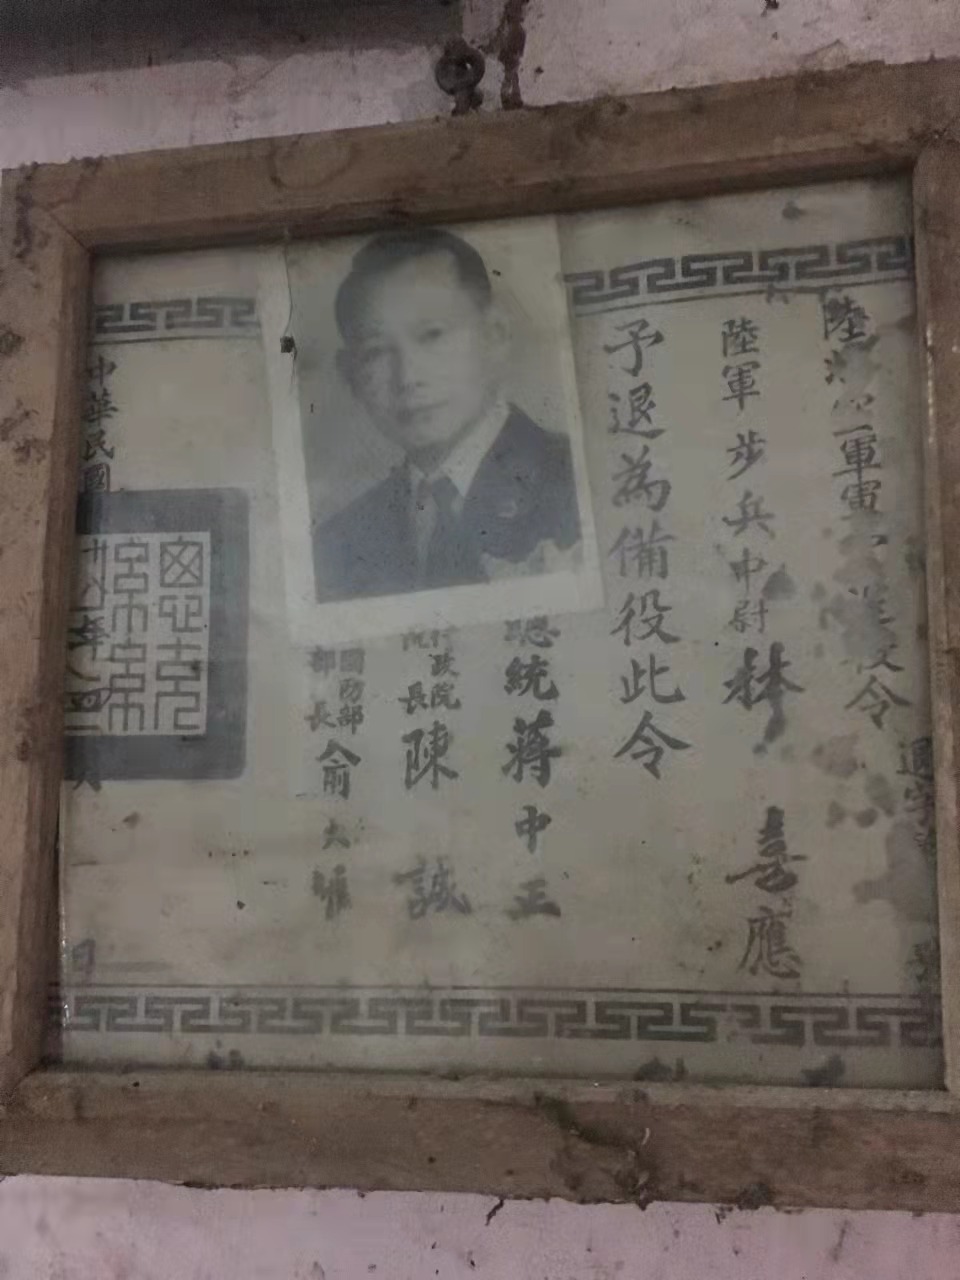 陸海空軍軍官退役令
退字第
號
陸軍步兵中尉林喜應
予退為備役此令
總統蔣中正
行政院院長陳誠
國防部部長俞大維
中華民國
年
月
日